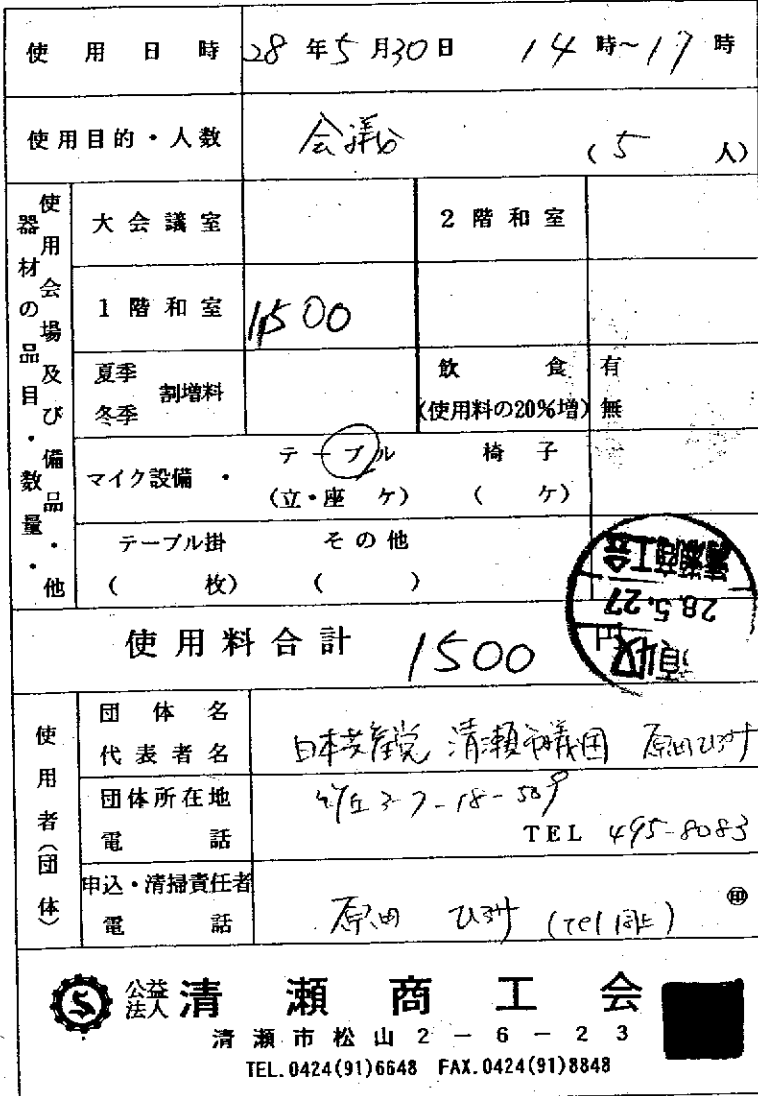 使用日時 28年5月30日 14時~17時
使用目的・人数 会議 (5人)
使用会場及び備品・他
器材の品目・数量・
大会議室 2階和室
1階和室 1,500
夏季 冬季 割増料 飲食 有
(使用料の20%増) 無
マイク設備 ・ テーブル 椅子
(立・座 ケ) ( ケ)
テーブル掛 その他
( 枚) ( )
使用料合計 1500 円
清瀬商工会
28.5.27
領収
使用者(団体)
団体名
代表者名 日本共産党 清瀬市議団 原田ひろみ
団体所在地 竹丘3-7-18-509
電話 TEL 495-8083
申込・清掃責任者
電話 原田 ひろみ (tel 同上) ㊞
公益法人 清瀬商工会
清瀬市松山2-6-23
TEL.0424(91)6648 FAX.0424(91)8848